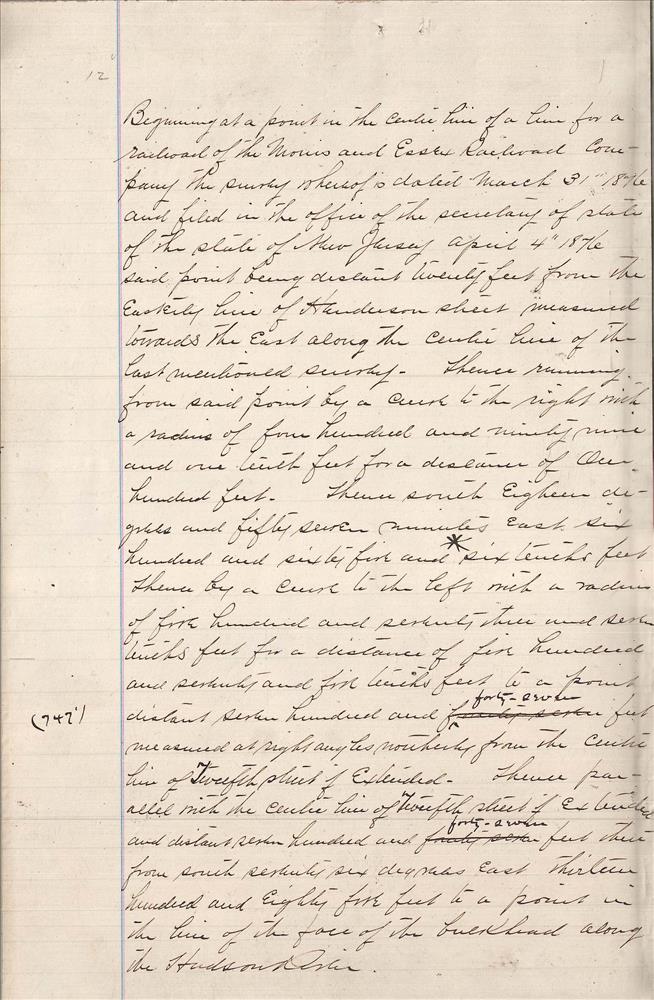 12
Beginning at a point in the centre line of a line for a
railroad of the Morris and Essex Railroad Com-
pany the survey whereof is dated March 31" 1876
and filed in the office of the secretary of state
of the state of New Jersey April 4" 1876
said point being distant twenty feet from the
Easterly line of Henderson street measured
towards the East along the centre line of the
last mentioned survey - Thence running
from said point by a curve to the right with
a radius of four hundred and ninety nine
and one tenth feet for a distance of One
hundred feet - Thence south Eighteen de-
grees and fifty seven minutes East six
hundred and sixty five and * six tenths feet
Thence by a curve to the left with a radius
of five hundred and seventy three and seven
tenths feet for a distance of five hundred
and seventy and five tenths feet to a point
forty-seven
distant seven hundred and feet
(747')
measured at right angles northerly from the centre
line of Twelfth street if Extended - Thence par-
allel with the centre line of Twelfth street if Extended
forty-seven
and distant seven hundred and feet there
from south seventy six degrees East thirteen
hundred and Eighty five feet to a point in
the line of the face of the bulkhead along
the Hudson River.